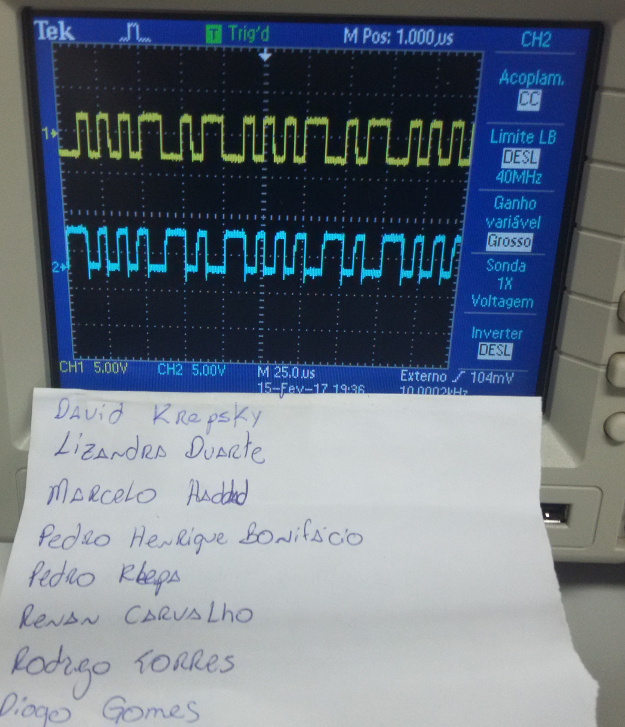 Tek T Trig'd M Pos: 1.000µs CH2
Acoplam.
CC
1
Limite LB
DESL
40MHz
Ganho
variável
Grosso
2
Sonda
1X
Voltagem
Inverter
DESL
CH1 5.00V CH2 5.00V M 25.0µs Externo 104mV
15-Fev-17 19:36 10.0002kHz
David Krepsky
Lizandra Duarte
Marcelo Haddad
Pedro Henrique Bonifácio
Pedro
Renan Carvalho
Rodrigo Torres
Diogo Gomes